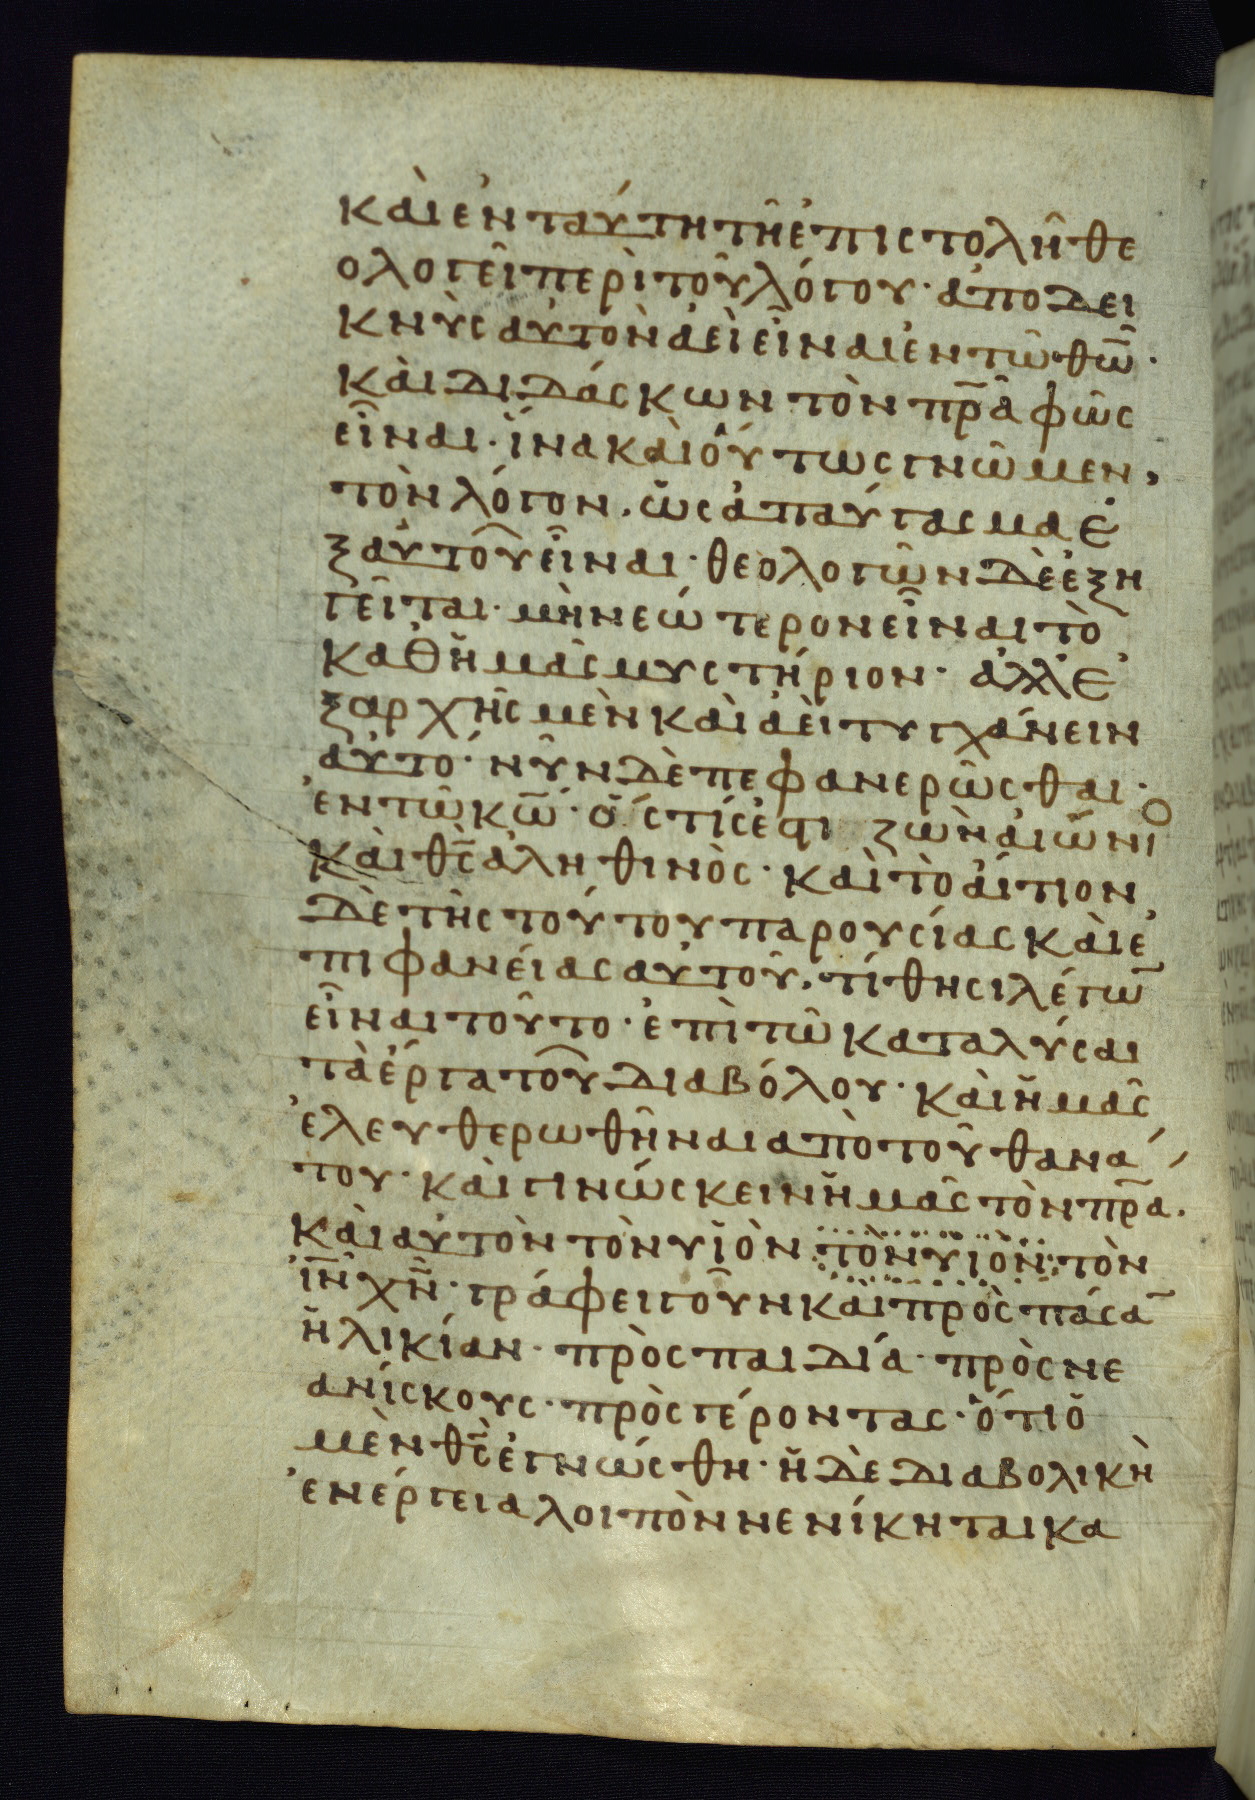 καὶ ἐν ταύτη τῆ ἐπιστολῆ θε
ολογεῖ περὶ τοῦ λόγου· ἀποδει
κνὺς αὐτὸν ἀεὶ εἶναι ἐν τῶ θω̅·
καὶ διδάσκων τὸν πρ̅α φῶς
εἶναι· ἵνα καὶ οὕτως γνῶμεν,
τὸν λόγον, ὡς ἀπαύγασμα ἐ
ξ αὐτοῦ εἶναι· θεολογῶν δὲ ἐξη
γεῖται· μὴ νεώτερον εἶναι τὸ
καθ ἡμᾶς μυστήριον· ἀλλ ἐ
ξ ἀρχῆς μὲν καὶ ἀεὶ τυγχάνειν
αὐτό· νῦν δὲ πεφανερῶσθαι·
ἐν τῶ κω̅· ὅστίς ἐστι ζωὴ αἰώνιο
καὶ θς̅ ἀληθινὸς· καὶ τὸ αἴτιον
δὲ τῆς τούτου παρουσίας καὶ ἐ
πιφανείας αὐτοῦ, τίθησι λέγω̅
εἶναι τοῦτο· ἐπὶ τῶ καταλύσαι
τὰ ἔργα τοῦ διαβόλου· καὶ ἡμᾶς
ἐλευθερωθῆναι ἀπὸ τοῦ θανά
του· καὶ γινώσκειν ἡμᾶς τὸν πρ̅α.
καὶ αὐτὸν τὸν υἱὸν τὸν υἱὸν τὸν
ιν̅ χν̅· γράφει γοῦν καὶ πρὸς πάσα̅
ἡλικίαν· πρὸς παιδία· πρὸς νε
ανίσκους· πρὸς γέροντας· ὅτι ὁ
μὲν θς̅ ἐγνώσθη· ἡ δὲ διαβολικὴ
ἐνέργεια λοιπὸν νενίκηται κα